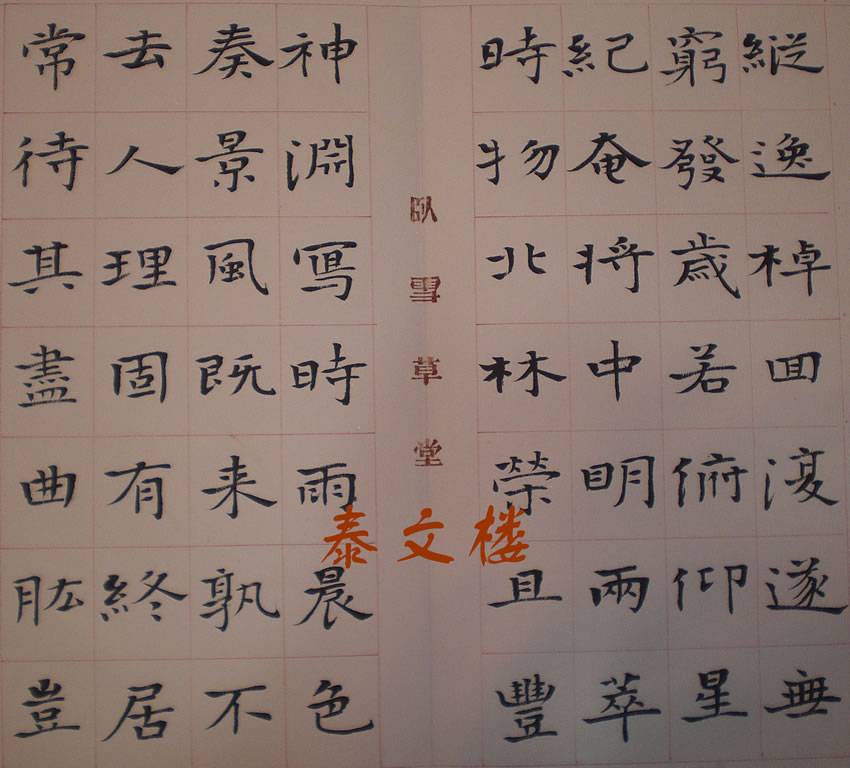 縦逸棹囬復遂無
窮發歲若俯仰星
紀奄將中明兩萃
時物北林榮且豐
臥雪草堂
神淵寫時雨晨色
奏景風既来孰不
去人理固有終居
常待其盡曲肱豈
泰文楼